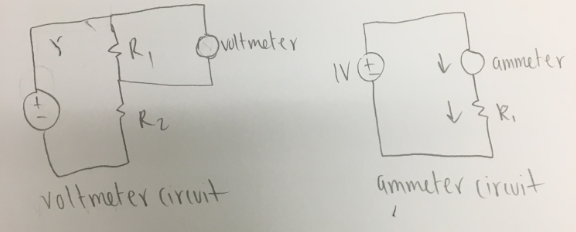 R1
voltmeter
R2
voltmeter circuit
1V
ammeter
R1
ammeter circuit